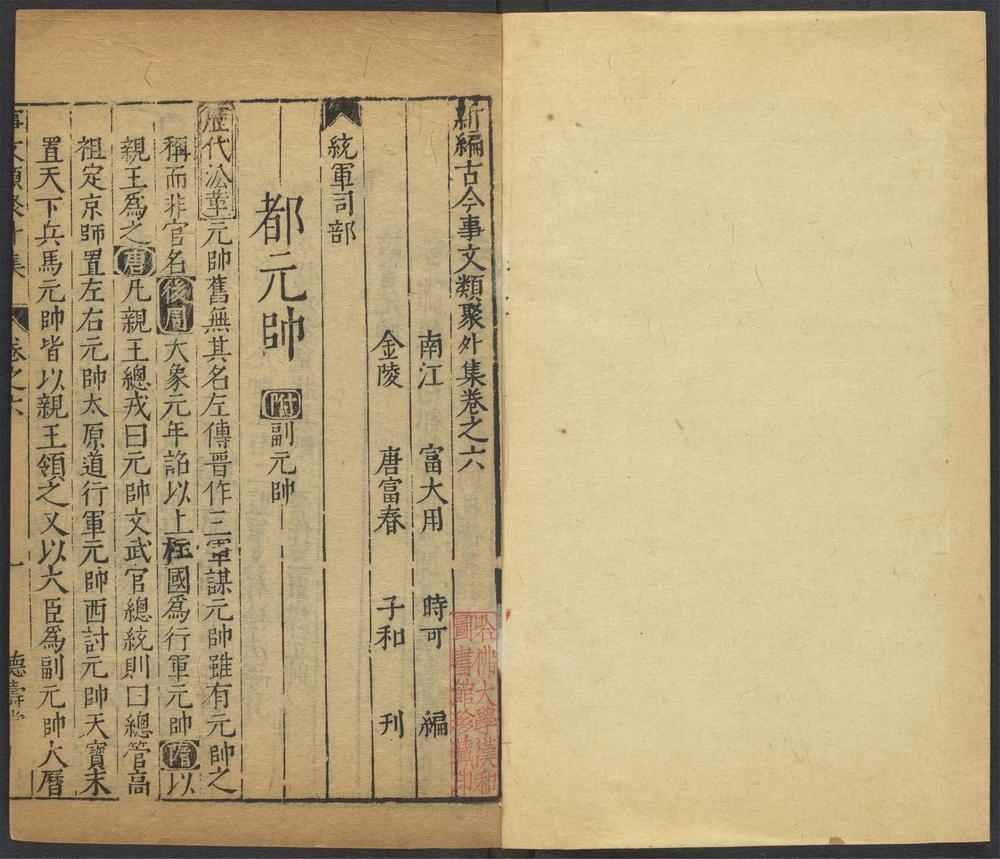 新編古今事文類聚外集卷之六
南江 富大用 時可 編
金陵 唐富春 子和 刊
統軍司部
都元帥 附 副元帥
歷代沿革 元帥舊無其名左傳晉作三軍謀元帥雖有元帥之
稱而非官名 後周 大象元年詔以上柱國爲行軍元帥 隋 以
親王爲之 唐 凡親王總戎曰元帥文武官總統則曰總管高
祖定京師置左右元帥太原道行軍元帥西討元帥天寶末
置天下兵馬元帥皆以親王領之又以大臣爲副元帥大曆
事文類聚 集 卷之六 一 德壽堂
哈佛大學漢和
圖書館珍藏印